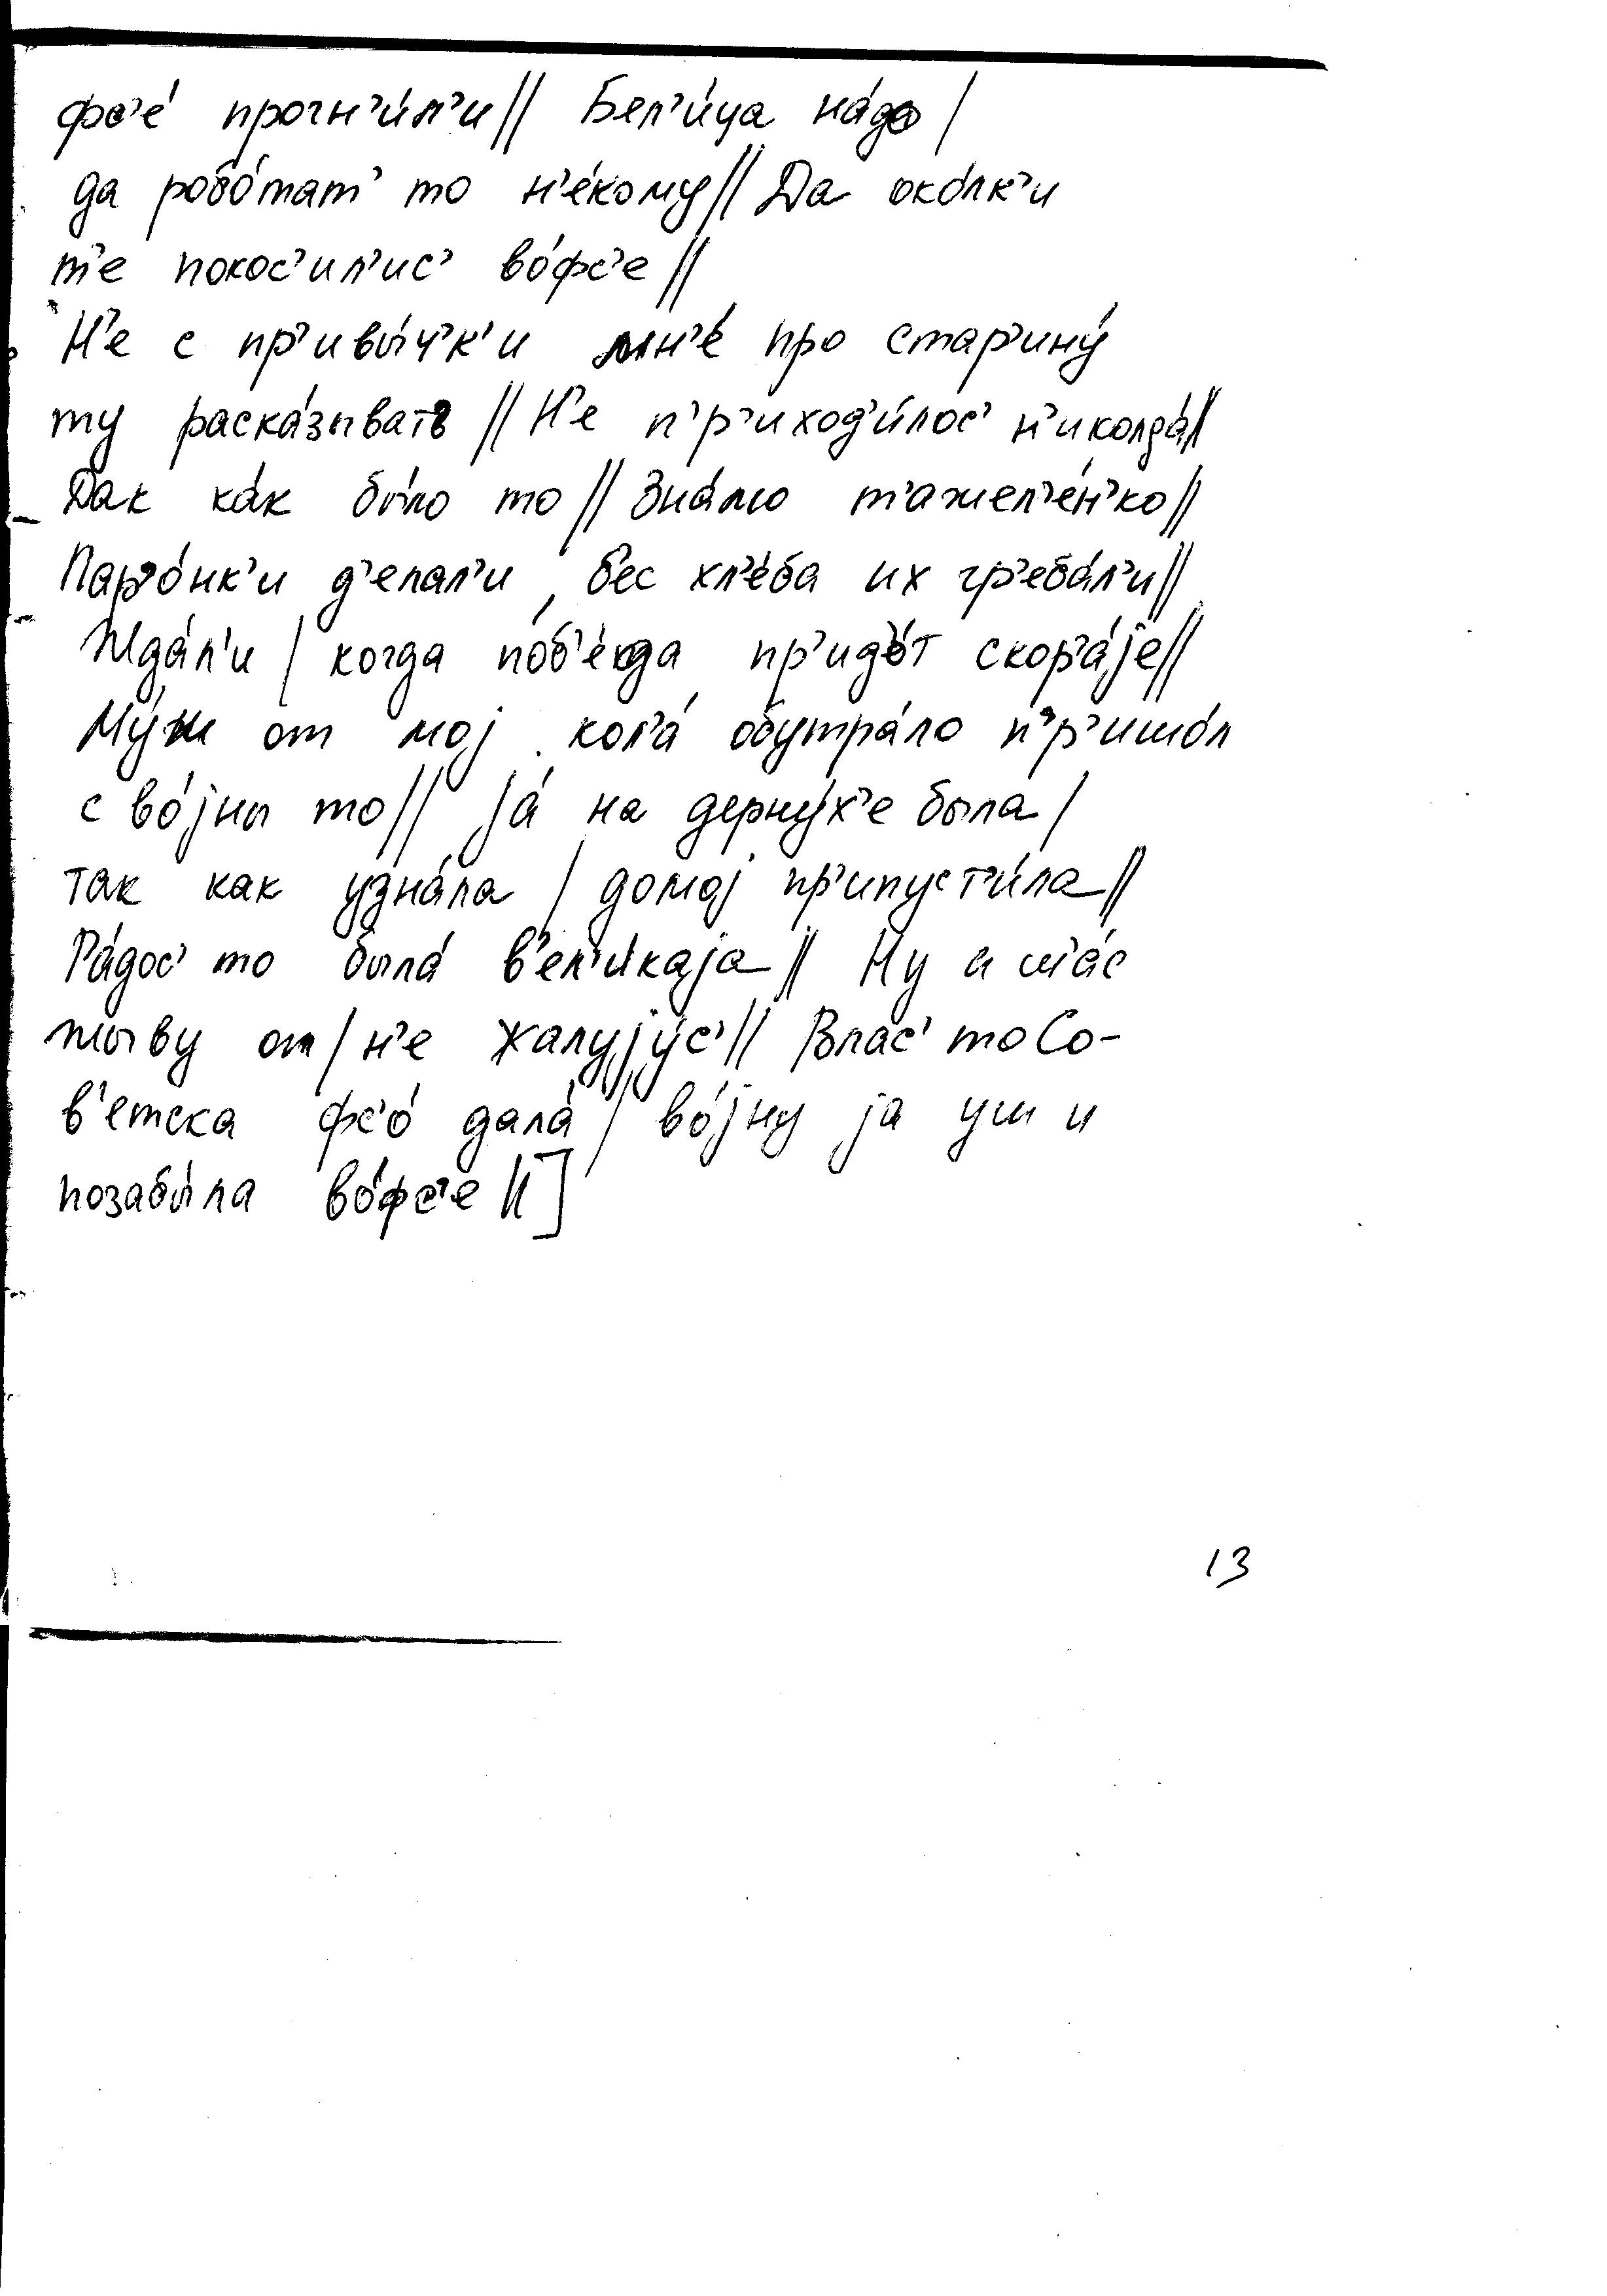 фс'е́ прогн'и́л'и // Бел'и́ца на́до /
да робо́тат' то н'е́кому // Да око́лк'и
т'е покос'ил'ис' во́фс'е //
Н'е с пр'ивы́ч'к'и мн'е́ про стар'ину́
ту раска́зывать // Н'е п'р'иход'и́лос' н'иколда́ //
Дак ка́к бы́ло то // Зна́мо т'ажел'е́н'ко //
д'елал'и, бес хл'е́ба их гр'еба́л'и //
Жда́л'и / когда поб'е́да пр'идо́т скор'а́је //
Му́ж от мој кол'а́ обутра́ло п'р'ишо́л
с во́јны то // Ја́ на дерну́х'е была /
так как узна́ла / домој пр'ипуст'и́ла //
Ра́дос' то была́ в'ел'и́каја // Ну и ш'а́с
жыву от / н'е жалују́с' // Влас' то Со-
в'етска фс'о́ дала́ / во́јну ја уш и
позабы́ла во́фс'е //]
13